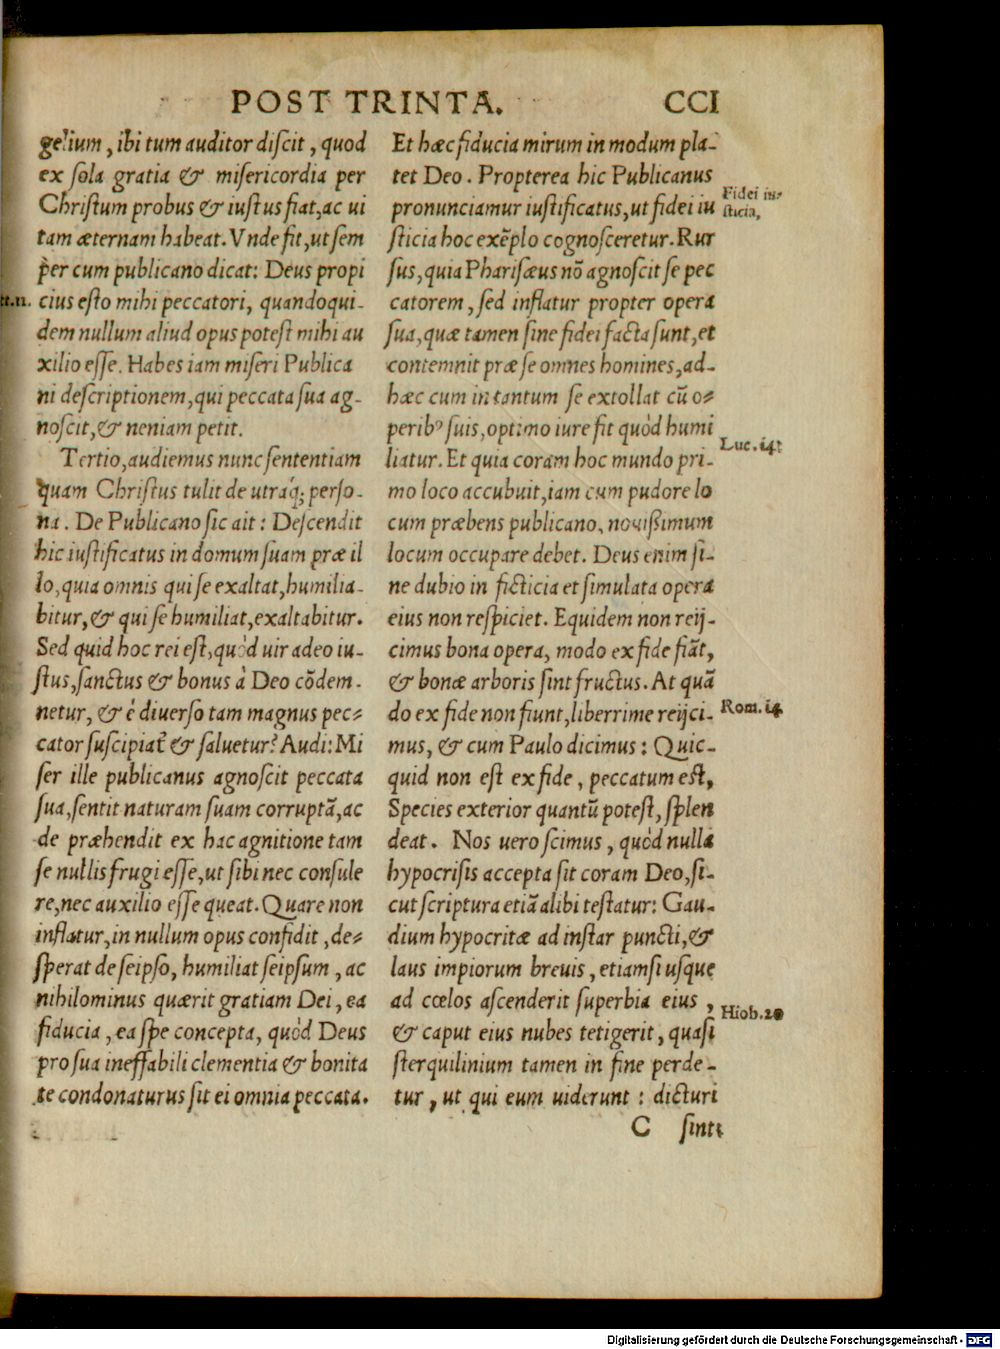 POST TRINTA. CCI
geliũm, ibi tum auditor discit, quod
ex sola gratia & misericordia per
Christum probus & iustus fiat, ac ui
tam æternam habeat. Vnde fit, ut sem
per cum publicano dicat: Deus propi
cius esto mihi peccatori, quandoqui-
dem nullum aliud opus potest mihi au
xilio esse. Habes iam miseri Publica
ni descriptionem, qui peccata sua ag-
noscit, & neniam petit.
Tertio, audiemus nunc sententiam
quam Christus tulit de utraq; perso-
na. De Publicano sic ait: Descendit
hic iustificatus in domum suam præ il
lo, quia omnis qui se exaltat, humilia-
bitur, & qui se humiliat, exaltabitur.
Sed quid hoc rei est, quòd uir adeo iu-
stus, sanctus & bonus à Deo cõdem-
netur, & è diuerso tam magnus pec-
cator suscipiat̃ & saluetur? Audi: Mi
ser ille publicanus agnoscit peccata
sua, sentit naturam suam corruptã, ac
de præhendit ex hac agnitione tam
se nullis frugi esse, ut sibi nec consule
re, nec auxilio esse queat. Quare non
inflatur, in nullum opus confidit, de-
sperat de seipso, humiliat seipsum, ac
nihilominus quærit gratiam Dei, ea
fiducia, ea spe concepta, quòd Deus
pro sua ineffabili clementia & bonita
te condonaturus sit ei omnia peccata.
Et hæc fiducia mirum in modum pla-
tet Deo. Propterea hic Publicanus
pronunciamur iustificatus, ut fidei iu
sticia hoc exẽplo cognosceretur. Rur
sus, quia Pharisæus nõ agnoscit se pec
catorem, sed inflatur propter opera
sua, quæ tamen sine fidei facta sunt, et
contemnit præ se omnes homines, ad-
hæc cum in tantum se extollat cũ o-
peribꝰ suis, optimo iure fit quòd humi
liatur. Et quia coram hoc mundo pri-
mo loco accubuit, iam cum pudore lo
cum præbens publicano, nouißimum
locum occupare debet. Deus enim si-
ne dubio in ficticia et simulata opera
eius non respiciet. Equidem non reij-
cimus bona opera, modo ex fide fiãt,
& bonæ arboris sint fructus. At quã
do ex fide non fiunt, liberrime reijci-
mus, & cum Paulo dicimus: Quic-
quid non est ex fide, peccatum est,
Species exterior quantũ potest, splen
deat. Nos uero scimus, quòd nulla
hypocrisis accepta sit coram Deo, si-
cut scriptura etiã alibi testatur: Gau-
dium hypocritæ ad instar puncti, &
laus impiorum breuis, etiamsi usque
ad cœlos ascenderit superbia eius,
& caput eius nubes tetigerit, quasi
sterquilinium tamen in fine perde-
tur, ut qui eum uiderunt: dicturi
C sint:
Fidei iu-
sticia,
Luc. 14:
Rom. 14
Hiob. 20
Digitalisierung gefördert durch die Deutsche Forschungsgemeinschaft - DFG